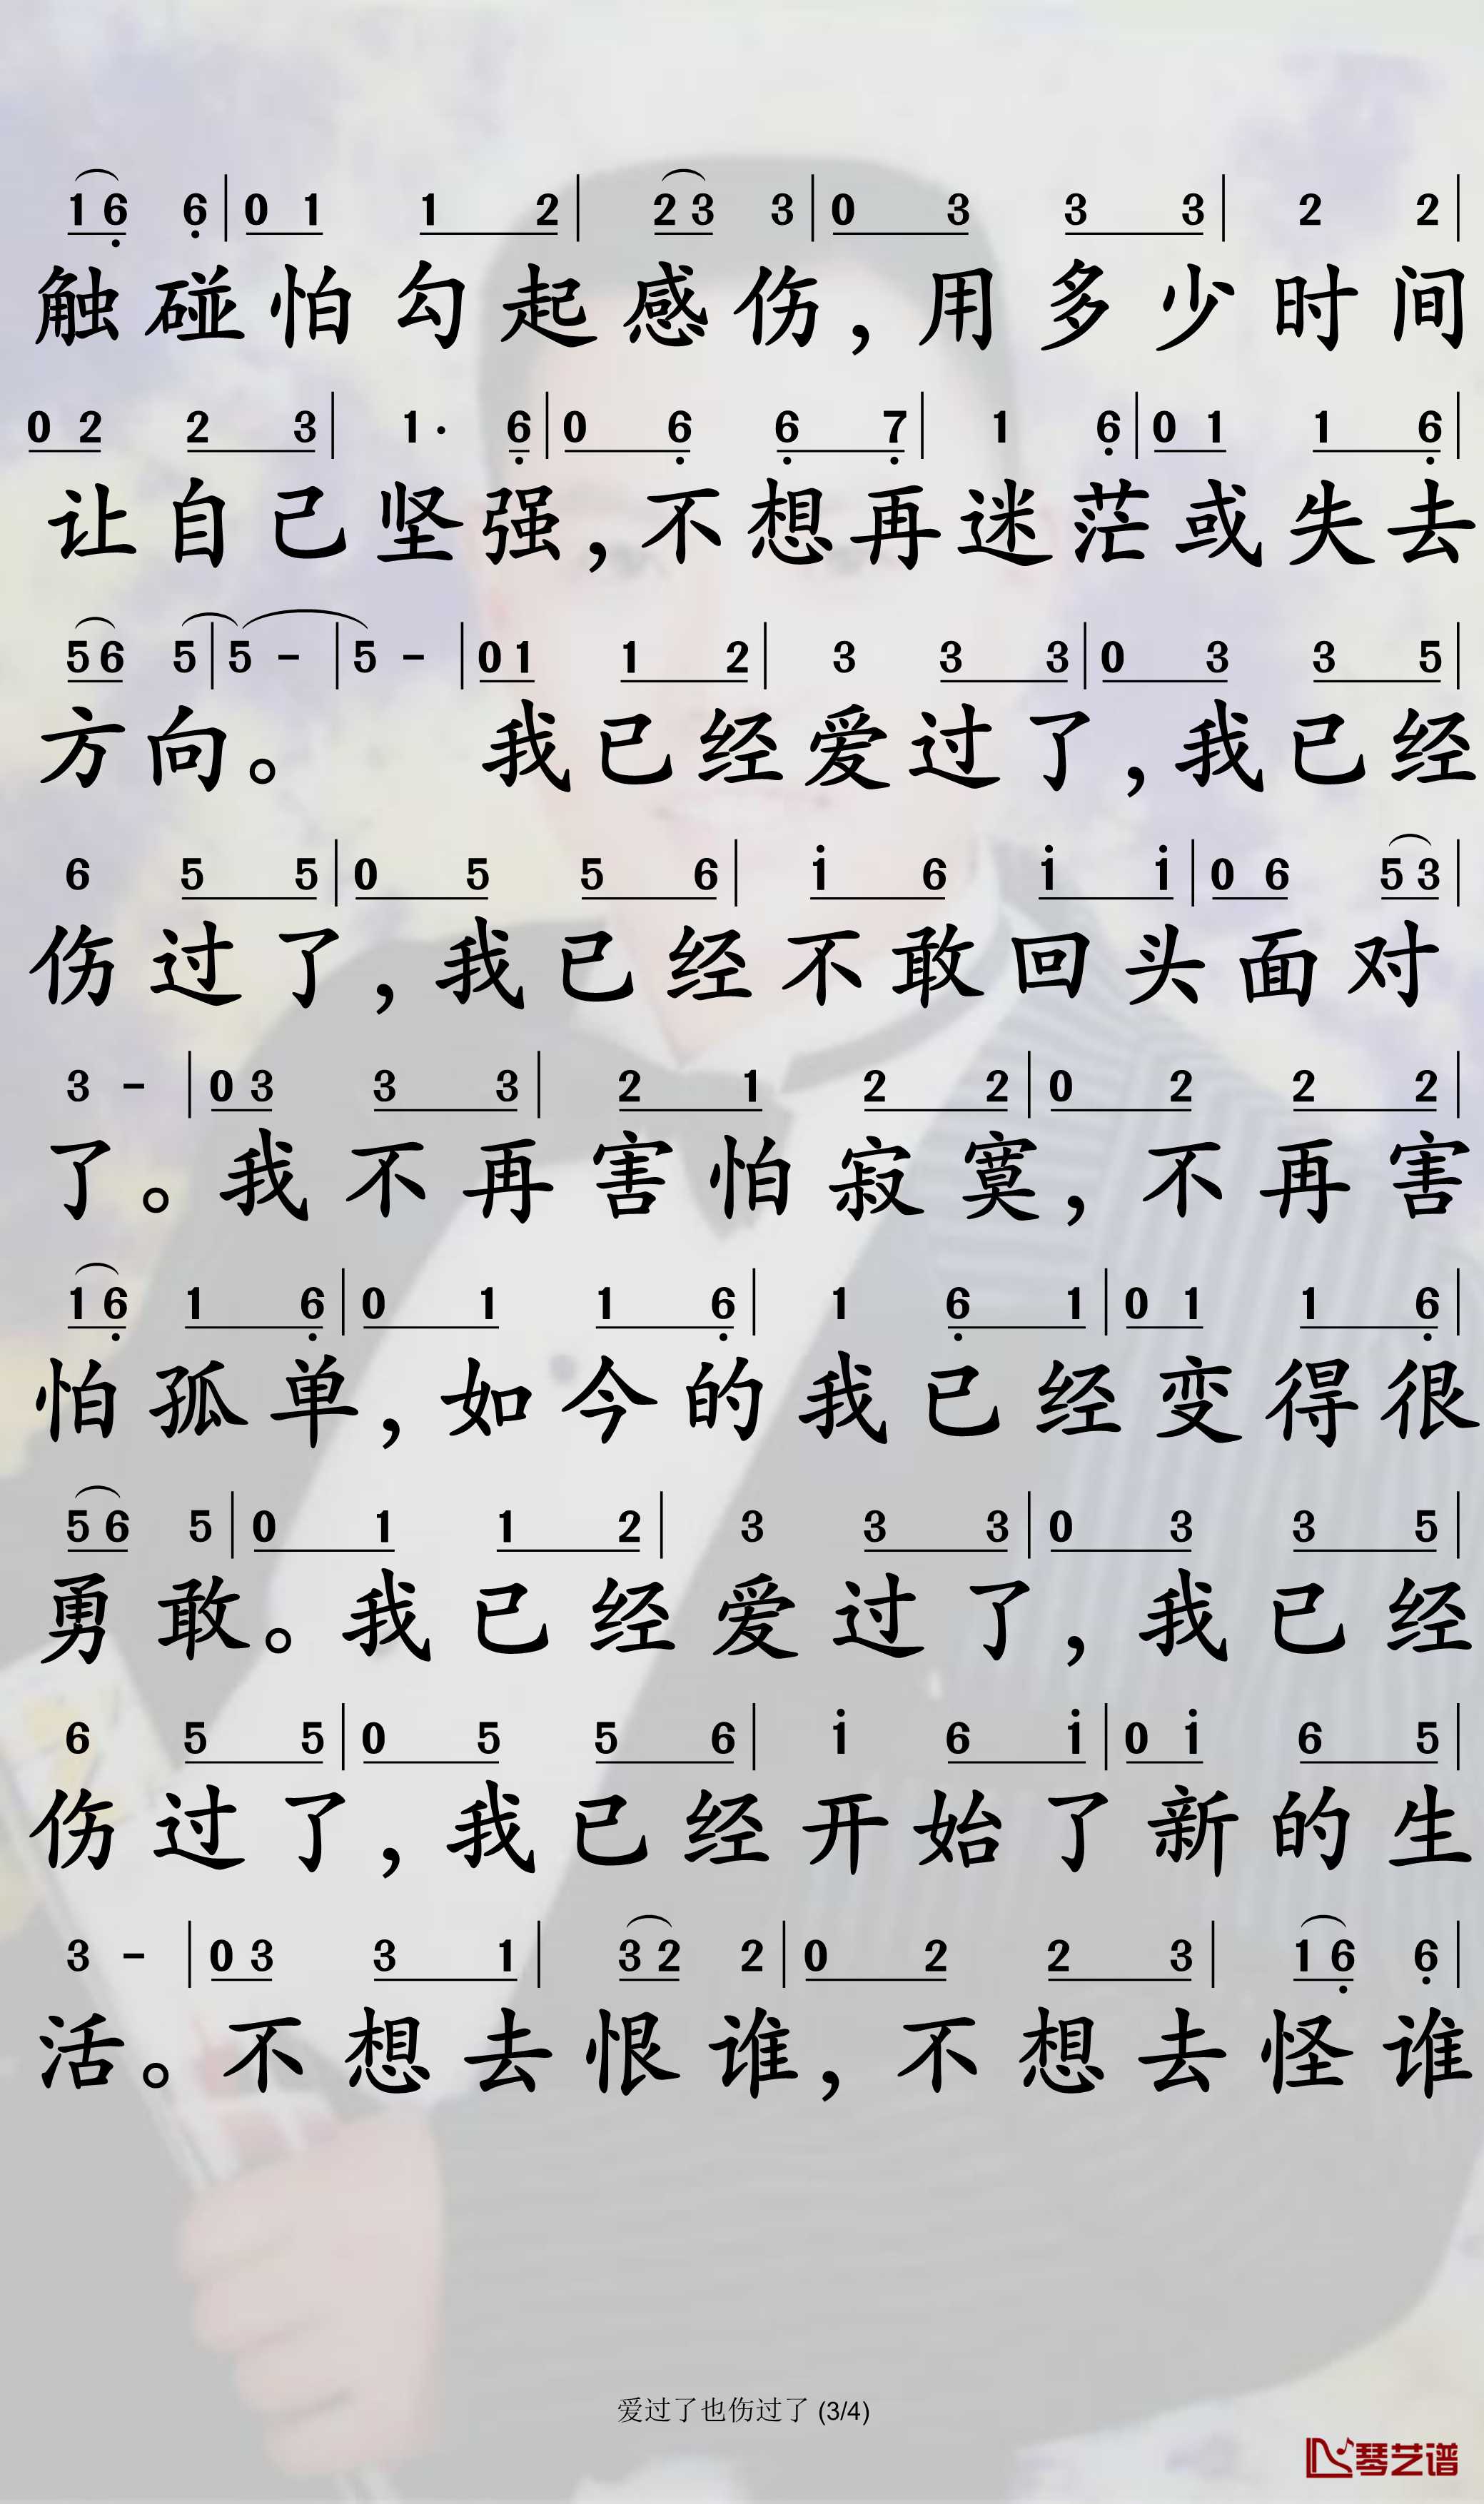 1 6 6 | 0 1 1 2 | 2 3 3 | 0 3 3 3 | 2 2 |
触碰怕勾起感伤，用多少时间
0 2 2 3 | 1· 6 | 0 6 6 7 | 1 6 | 0 1 1 6 |
让自己坚强，不想再迷茫或失去
5 6 5 | 5 - | 5 - | 0 1 1 2 | 3 3 3 | 0 3 3 5 |
方向。我已经爱过了，我已经
6 5 5 | 0 5 5 6 | i 6 i i | 0 6 5 3 |
伤过了，我已经不敢回头面对
3 - | 0 3 3 3 | 2 1 2 2 | 0 2 2 2 |
了。我不再害怕寂寞，不再害
1 6 1 6 | 0 1 1 6 | 1 6 1 | 0 1 1 6 |
怕孤单，如今的我已经变得很
5 6 5 | 0 1 1 2 | 3 3 3 | 0 3 3 5 |
勇敢。我已经爱过了，我已经
6 5 5 | 0 5 5 6 | i 6 i | 0 i 6 5 |
伤过了，我已经开始了新的生
3 - | 0 3 3 1 | 3 2 2 | 0 2 2 3 | 1 6 6 |
活。不想去恨谁，不想去怪谁
爱过了也伤过了 (3/4)
琴艺谱